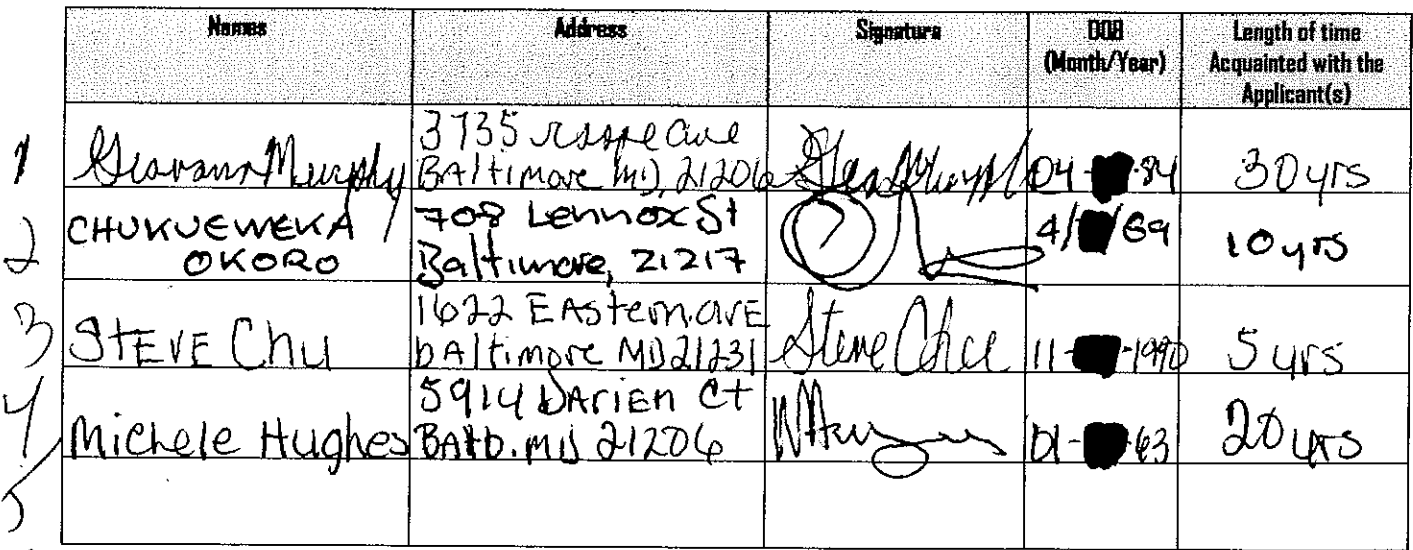 Names Address Signature DOB (Month/Year) Length of time Acquainted with the Applicant(s)
1 Murphy 3735 ave Baltimore MD, 21206 04- -84 30 yrs
2 CHUKUEWEKA OKORO 708 Lennox St Baltimore, 21217 4/ /69 10 yrs
3 STEVE Chu 1622 EAstern AVE bAltimore MD 21231 Steve Chu 11- -1990 5 yrs
4 Michele Hughes 5914 DAriEn Ct BAltO. MD 21206 01- -63 20 yrs
5